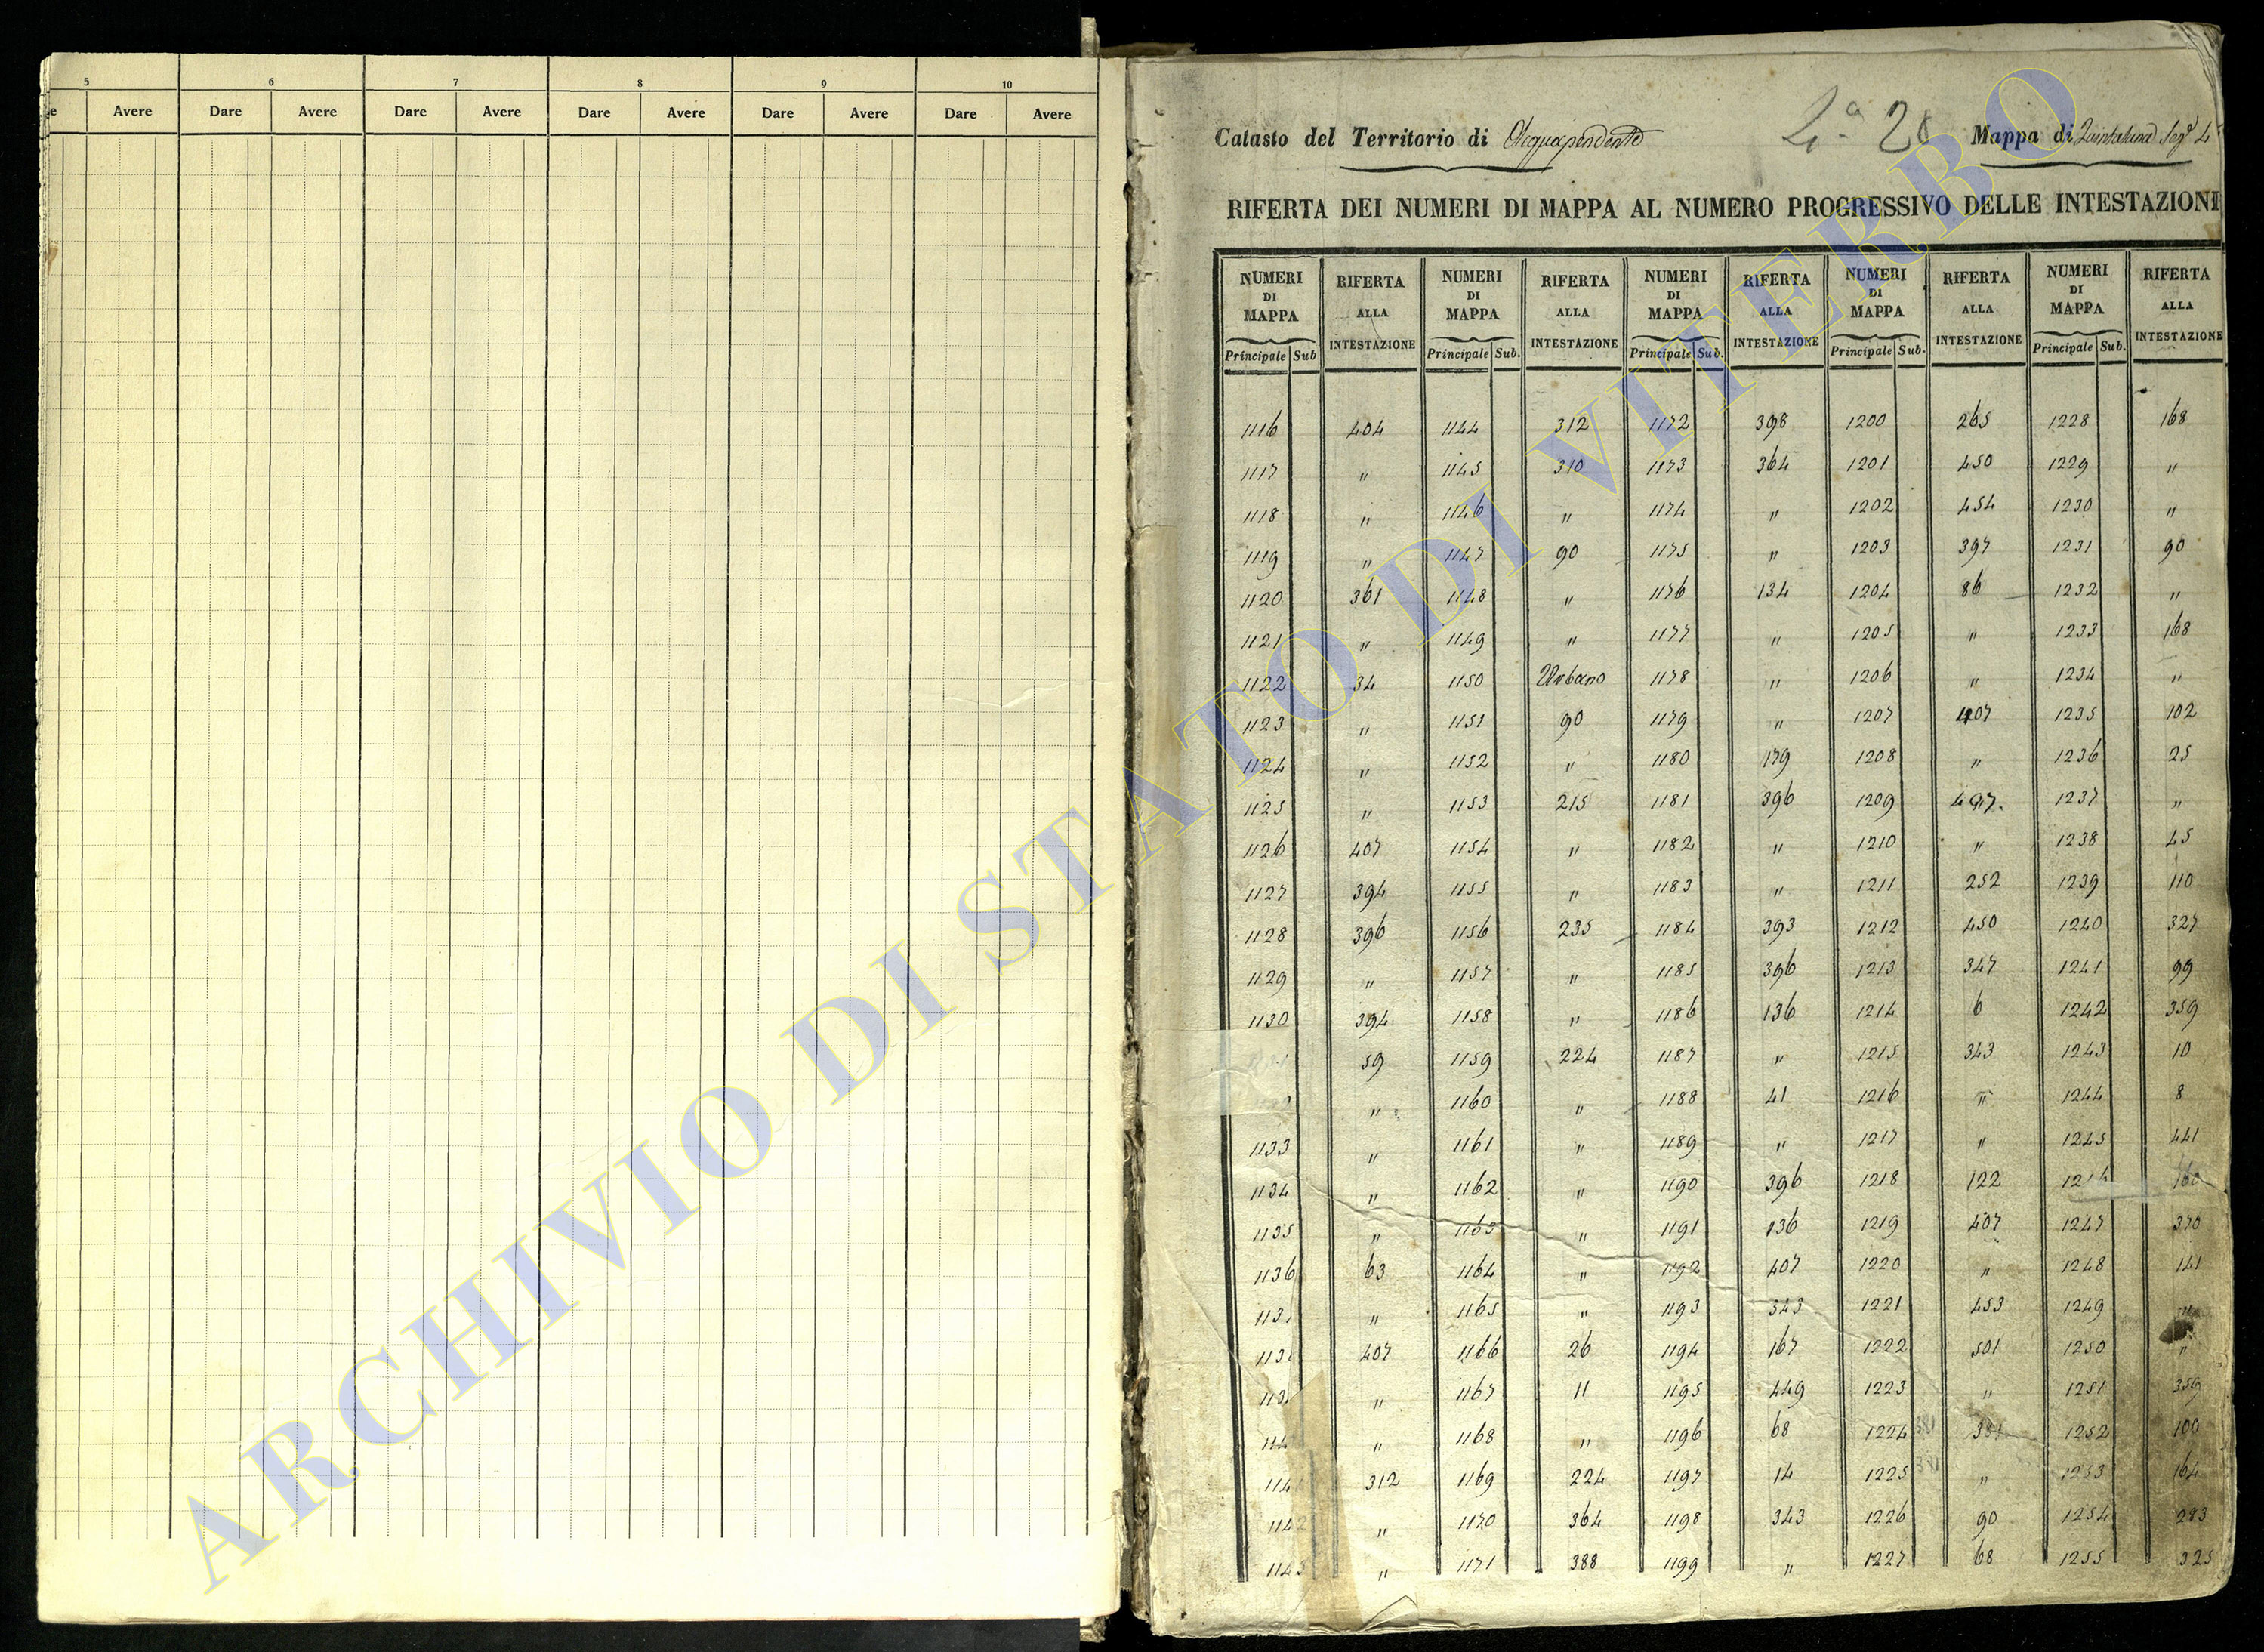 5 6 7 8 9 10
Avere Dare Avere Dare Avere Dare Avere Dare Avere Dare Avere
2ª 20
Catasto del Territorio di Acquapendente Mappa di
RIFERTA DEI NUMERI DI MAPPA AL NUMERO PROGRESSIVO DELLE INTESTAZIONI
NUMERI RIFERTA NUMERI RIFERTA NUMERI RIFERTA NUMERI RIFERTA NUMERI RIFERTA
DI ALLA DI ALLA DI ALLA DI ALLA DI ALLA
MAPPA INTESTAZIONE MAPPA INTESTAZIONE MAPPA INTESTAZIONE MAPPA INTESTAZIONE MAPPA INTESTAZIONE
Principale Sub Principale Sub. Principale Sub. Principale Sub. Principale Sub.
1116 404 1144 312 1172 398 1200 265 1228 168
1117 " 1145 310 1173 364 1201 450 1229 "
1118 " 1146 " 1174 " 1202 454 1230 "
1119 " 1147 90 1175 " 1203 397 1231 90
1120 361 1148 " 1176 134 1204 86 1232 "
1121 " 1149 " 1177 " 1205 " 1233 168
1122 34 1150 Urbano 1178 " 1206 " 1234 "
1123 " 1151 90 1179 " 1207 407 1235 102
1124 " 1152 " 1180 179 1208 " 1236 25
1125 " 1153 215 1181 396 1209 497. 1237 "
1126 407 1154 " 1182 " 1210 " 1238 45
1127 394 1155 " 1183 " 1211 252 1239 110
1128 396 1156 235 1184 393 1212 450 1240 327
1129 " 1157 " 1185 396 1213 347 1241 99
1130 394 1158 " 1186 136 1214 6 1242 359
59 1159 224 1187 " 1215 343 1243 10
" 1160 " 1188 41 1216 " 1244 8
1133 " 1161 " 1189 " 1217 " 1245 441
1134 " 1162 " 1190 396 1218 122 160
1135 " 1163 " 1191 136 1219 407 1247 370
1136 63 1164 " 1192 407 1220 " 1248 141
" 1165 " 1193 343 1221 453 1249 "
407 1166 26 1194 167 1222 501 1250 "
" 1167 11 1195 449 1223 " 1251 359
" 1168 " 1196 68 1224 381 1252 100
312 1169 224 1197 14 1225 " 1253 164
1142 " 1170 364 1198 343 1226 90 1254 283
1143 " 1171 388 1199 " 1227 68 1255 325
ARCHIVIO DI STATO DI VITERBO